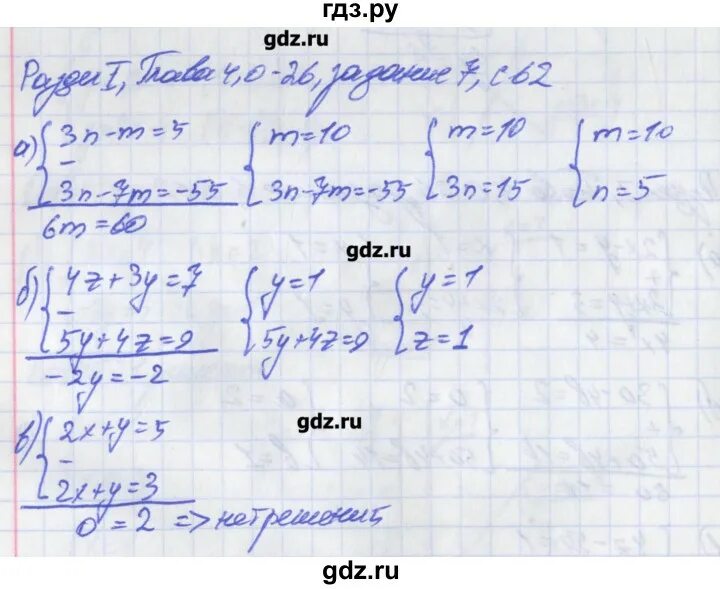 гдз.ру
gdz.ru
Раздел I, Глава 4, О-26, задание 7, с 62
а) { 3n-m=5 { m=10 { m=10 { m=10
-
3n-7m=-55 3n-7m=-55 3n=15 n=5
6m=60
gdz.ru
б) { 4z+3y=7 { y=1 { y=1
-
5y+4z=9 5y+4z=9 z=1
-2y=-2
gdz.ru
в) { 2x+y=5
-
2x+y=3
0=2 => нет решений
gdz.ru